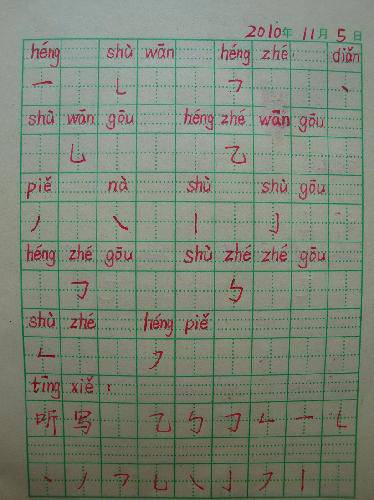 2010年 11月 5日
héng shù wān héng zhé diǎn
一 ㇄ ㇕ 丶
shù wān gōu héng zhé wān gōu
乚 ⺄
piě nà shù shù gōu
丿 ㇏ 丨 亅
héng zhé gōu shù zhé zhé gōu
㇆ ㇉
shù zhé héng piě
㇗ ㇇
tīng xiě :
听写 ⺄ ㇉ ㇆ ㇗ 一 ㇄
丶 丿 ㇕ 乚 ㇏ 亅 ㇇ 丨